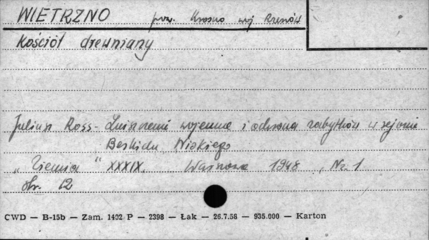 WIETRZNO pow. Krosno woj. Rzeszów
Kościół drewniany
Juliusz Ross - Zniszczenia wojenne i ochrona zabytków w rejonie
Beskidu Niskiego
„Ziemia" XXXIX. Warszawa 1948, Nr. 1
str. 12
CWD — B-15b — Zam. 1492 P — 2398 — Łak — 26.7.56 — 935.000 — Karton